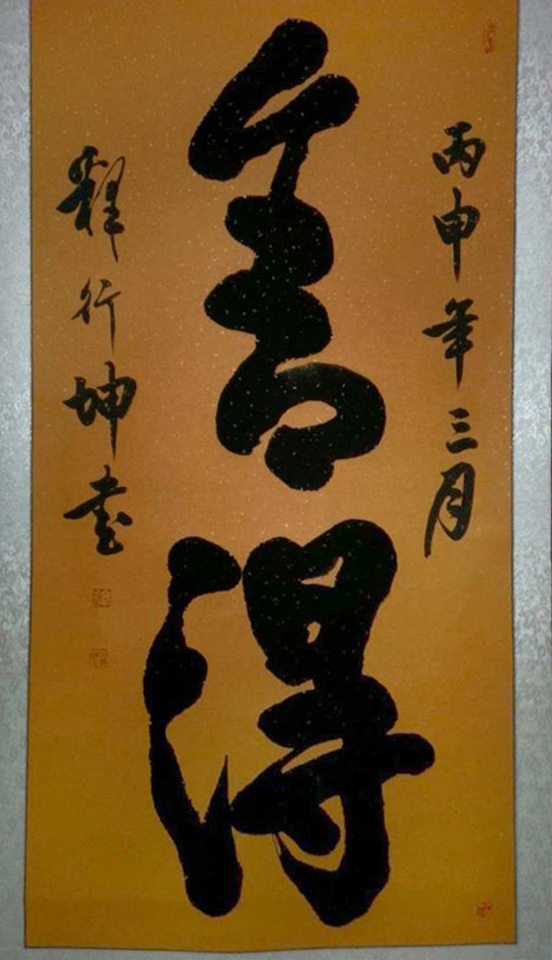 丙申年三月
舍得
释行坤书